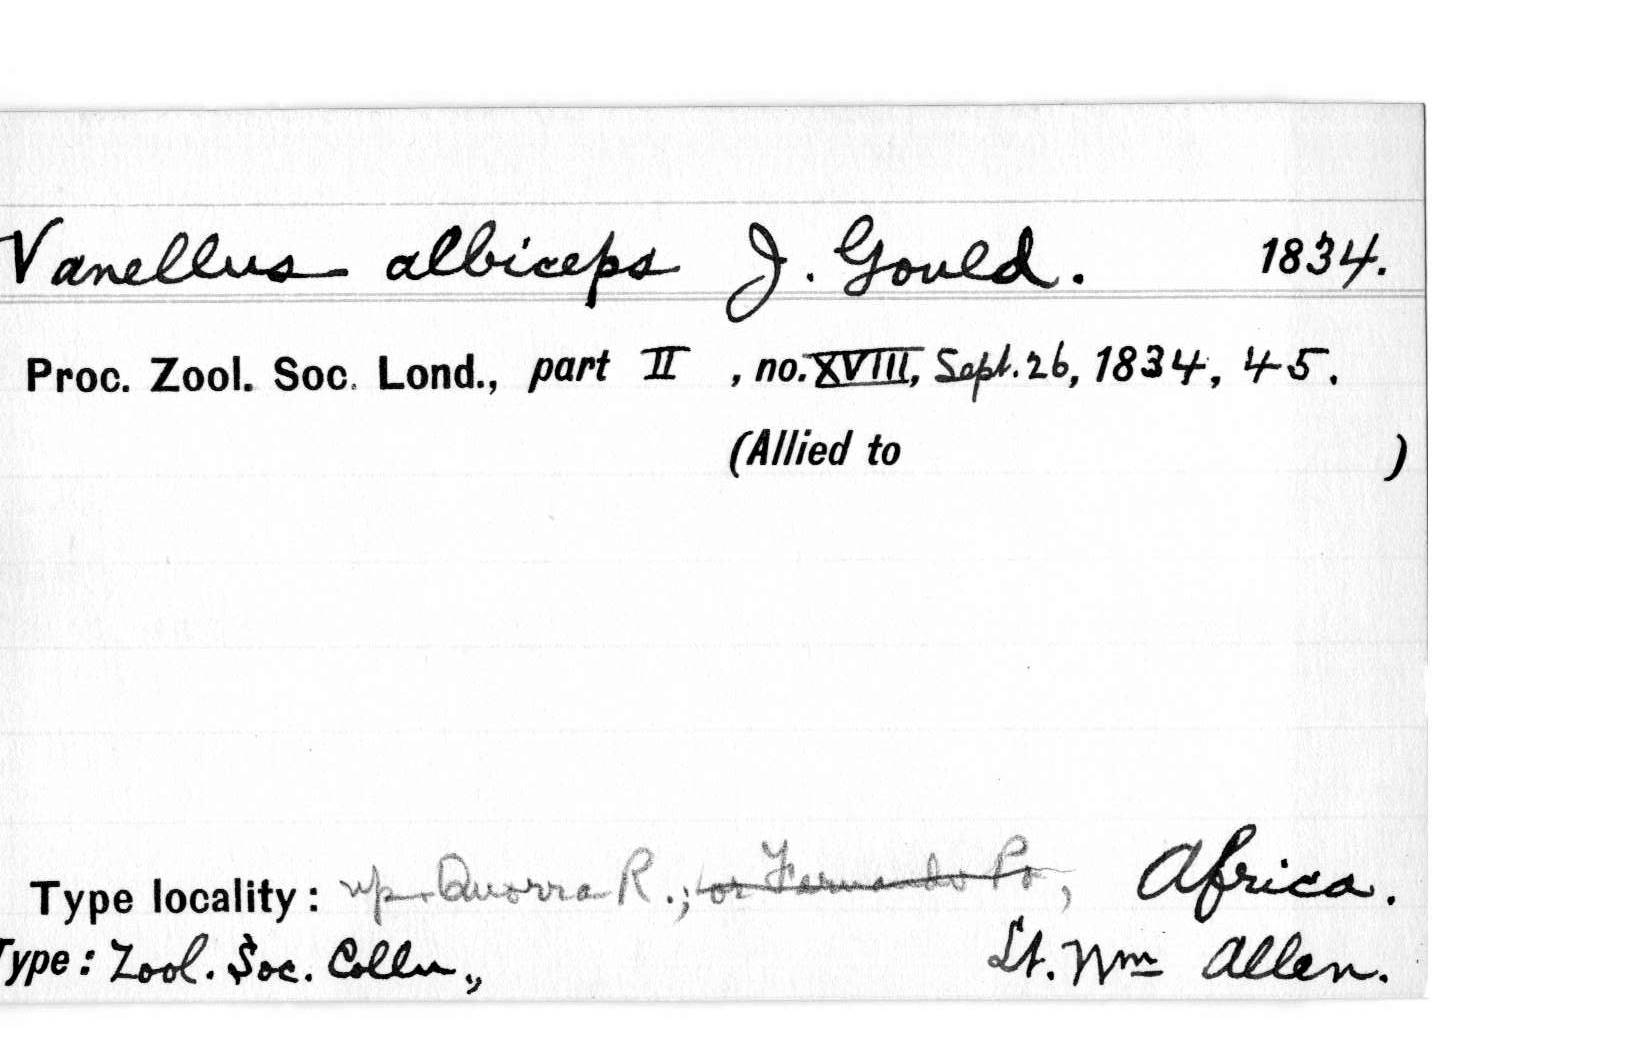 Vanellus albiceps J. Gould. 1834.
Proc. Zool. Soc. Lond., part II, no. XVIII, Sept. 26, 1834, 45.
(Allied to )
Type locality: up. Quorra R.; or Fernando Po, Africa.
Type: Zool. Soc. Colln., Lt. Wm Allen.